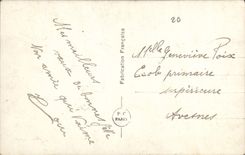 20
Mes meilleurs
vœux de bonne fête
Ton amie qui t'aime
Fabrication Française
P.C
PARIS
Mlle Geneviève Poix
Ecole primaire
supérieure
Avesnes